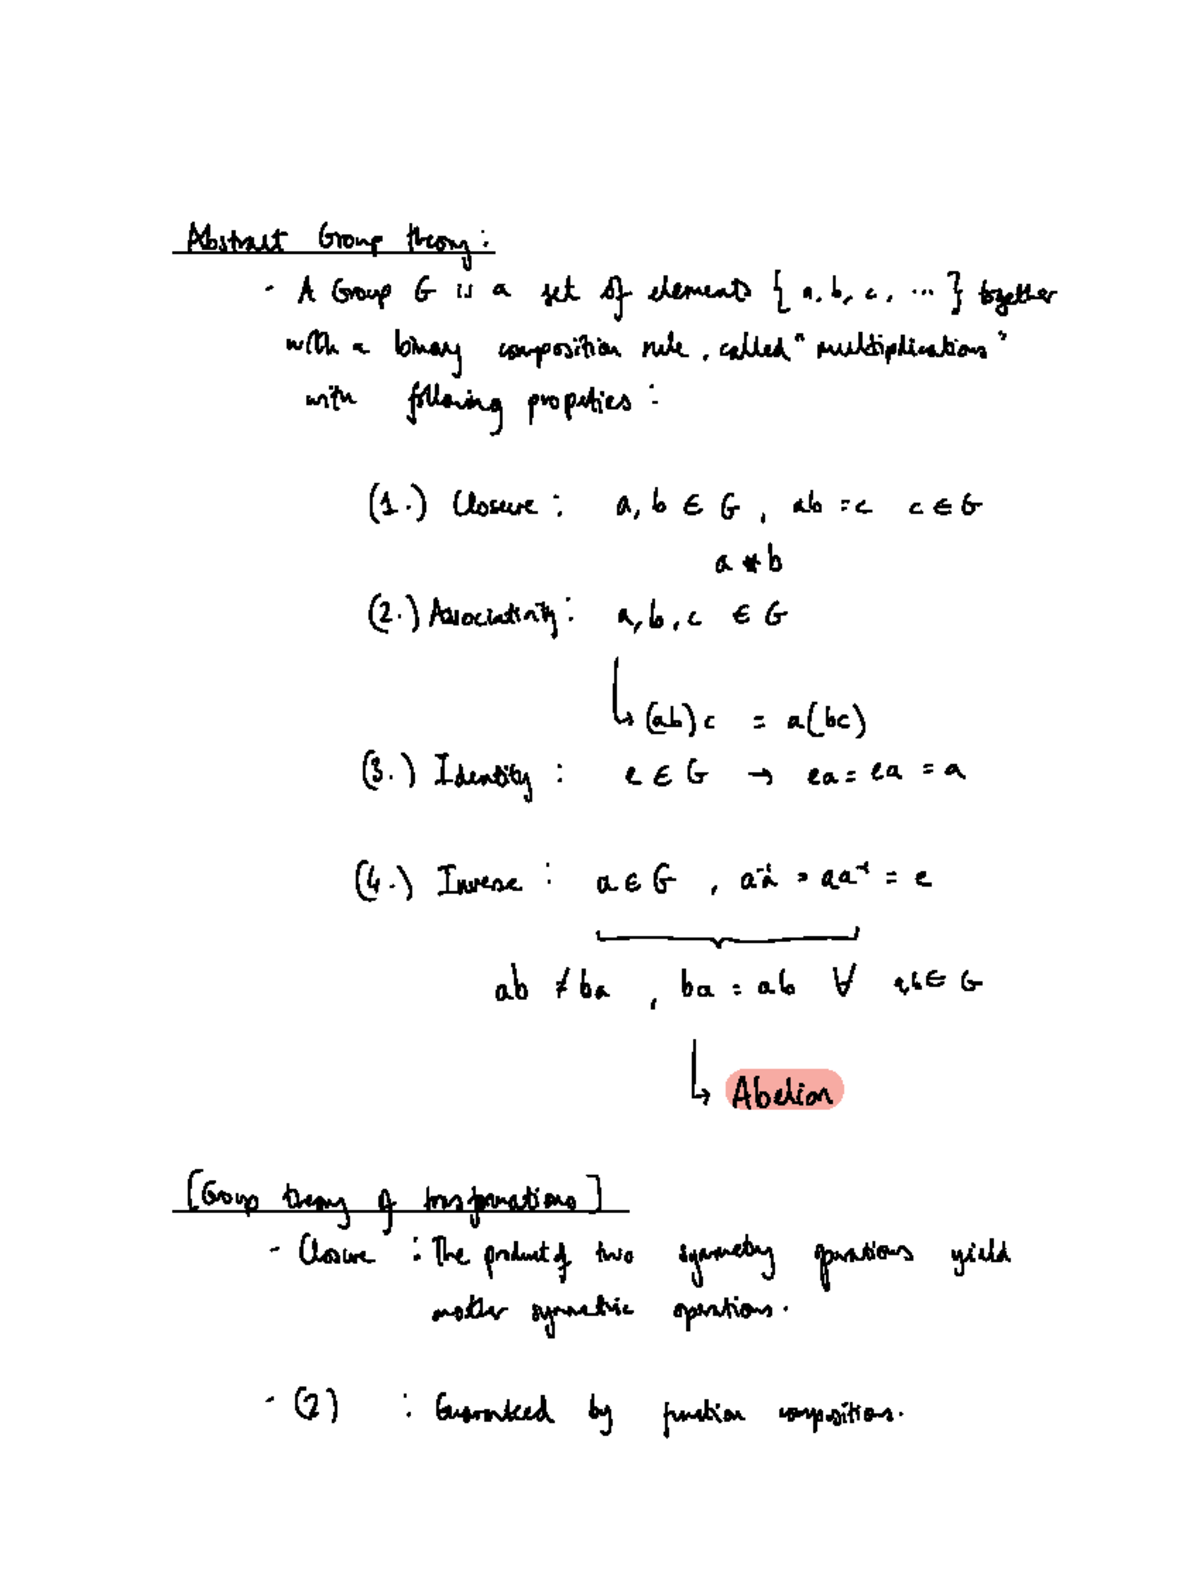 Abstract Group theory:
- A Group G is a set of elements { a, b, c, ... } together
with a binary composition rule, called "multiplications"
with following propeties :
(1.) Closure : a, b ∈ G , ab = c c ∈ G
a * b
(2.) Associativity : a, b, c ∈ G
↳ (ab)c = a(bc)
(3.) Identity : e ∈ G → ea = ea = a
(4.) Inverse : a ∈ G , a⁻¹a = aa⁻¹ = e
ab ≠ ba , ba = ab ∀ a,b ∈ G
↳ Abelian
[Group theory of transformations]
- Closure : The product of two symmetry operations yield
another symmetric operations.
- (2) : Guaranteed by function compositions.